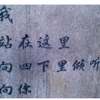 我
站在这里
向四下里倾听
向你